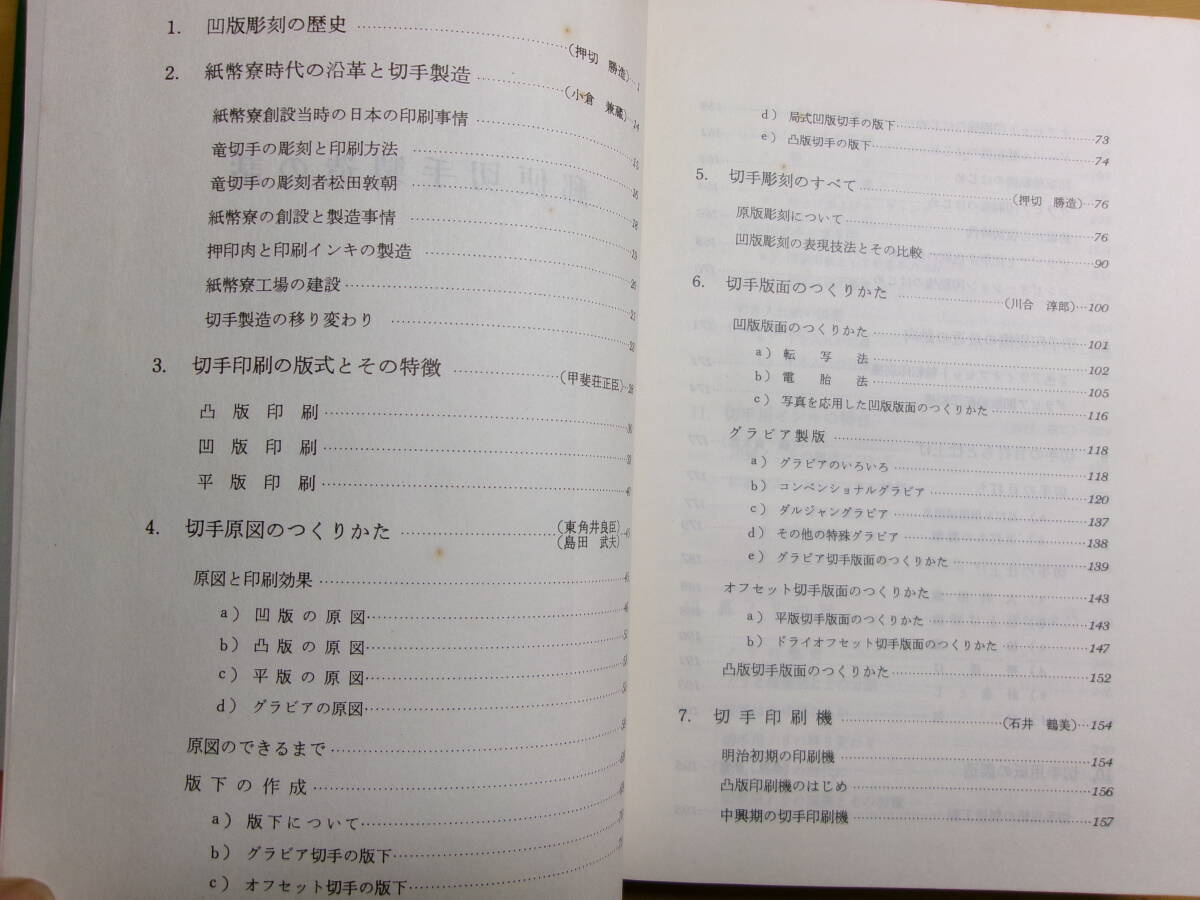 1. 凹版彫刻の歴史 (押切 勝造) 1
2. 紙幣寮時代の沿革と切手製造 (小倉 兼蔵) 14
紙幣寮創設当時の日本の印刷事情 15
竜切手の彫刻と印刷方法
竜切手の彫刻者松田敦朝 16
紙幣寮の創設と製造事情 18
押印肉と印刷インキの製造 19
紙幣寮工場の建設 20
切手製造の移り変わり
3. 切手印刷の版式とその特徴 (甲斐荘正臣)
凸版印刷 30
凹版印刷
平版印刷
4. 切手原図のつくりかた (東角井良臣)
(島田 武夫)
原図と印刷効果
a) 凹版の原図
b) 凸版の原図
c) 平版の原図
d) グラビアの原図
原図のできるまで
版下の作成
a) 版下について
b) グラビア切手の版下
c) オフセット切手の版下
d) 局式凹版切手の版下 73
e) 凸版切手の版下 74
5. 切手彫刻のすべて (押切 勝造) 76
原版彫刻について 76
凹版彫刻の表現技法とその比較 90
6. 切手版面のつくりかた (川合 淳郎) 100
凹版版面のつくりかた 101
a) 転写法 102
b) 電胎法 105
c) 写真を応用した凹版版面のつくりかた 116
グラビア製版 118
a) グラビアのいろいろ 118
b) コンベンショナルグラビア 120
c) ダルジャングラビア 137
d) その他の特殊グラビア 138
e) グラビア切手版面のつくりかた 139
オフセット切手版面のつくりかた 143
a) 平版切手版面のつくりかた 143
b) ドライオフセット切手版面のつくりかた 147
凸版切手版面のつくりかた 152
7. 切手印刷機 (石井 鶴美) 154
明治初期の印刷機 154
凸版印刷機のはじめ 156
中興期の切手印刷機 157